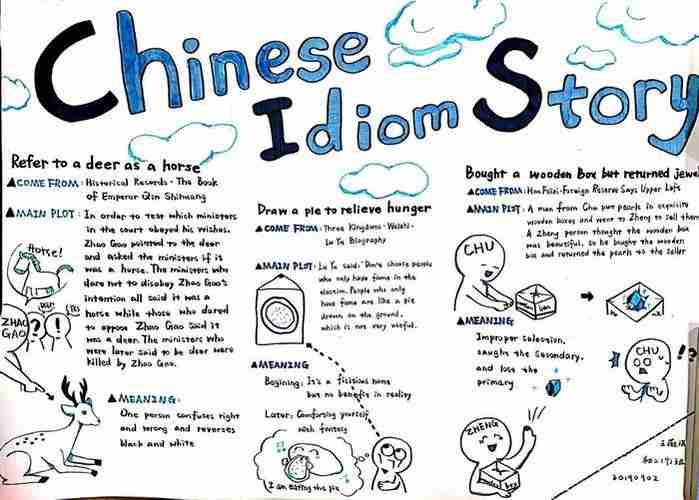 Chinese
Idiom Story
Refer to a deer as a horse
▲COME FROM: Historical Records - The Book
of Emperor Qin Shihuang
▲MAIN PLOT: In order to test which ministers
in the court obeyed his wishes.
Zhao Gao pointed to the deer
and asked the ministers if it
was a horse. The ministers who
dare not to disobey Zhao Gao's
intention all said it was a
horse while those who dared
to oppose Zhao Gao said it
was a deer. The ministers who
were later said to be deer were
killed by Zhao Gao.
Horse!
YES
ZHAO
GAO
? !
▲MEANING:
One person confuses right
and wrong and reverses
black and white
Draw a pie to relieve hunger
▲COME FROM: Three Kingdoms - Weishi-
Lu Yu Biography
▲MAIN PLOT: Lu Yu said: "Don't choose people
who only have fame in the
election. People who only
have fame are like a pie
drawn on the ground,
which is not very useful.
▲MEANING
Begining: It's a
but no benefit in reality
Later: Comforting yourself
with fantasy
I am eating the pie
Bought a wooden Box but returned jewel
▲COME FROM: Han Feizi-Foreign Reserve Says Upper Left
▲MAIN PLOT: A man from Chu put pearls in exquisite
wooden boxes and went to Zheng to sell them
A Zheng person thought the wooden box
was beautiful, so he bought the wooden
box and returned the pearls to the seller
CHU
▲MEANING
Improper selection,
caught the secondary,
and lose the
primary
CHU
!?
ZHENG
20190902